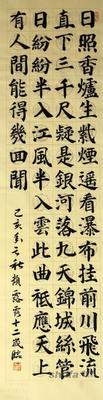 日照香爐生紫煙遥看瀑布挂前川飛流
直下三千尺疑是銀河落九天錦城絲管
日紛紛半入江風半入雲此曲祇應天上
有人間能得幾回聞
己亥之秋 十二歲